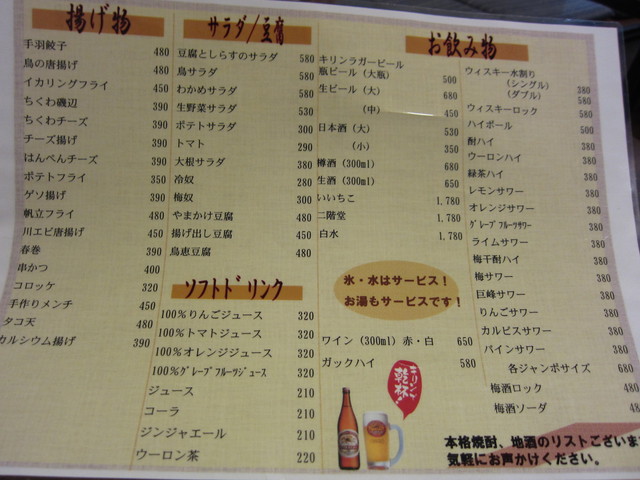 揚げ物
手羽餃子 480
鳥の唐揚げ 480
イカリングフライ 450
ちくわ磯辺 390
ちくわチーズ 390
チーズ揚げ 390
はんぺんチーズ 390
ポテトフライ 350
ゲソ揚げ 390
帆立フライ 480
川エビ唐揚げ 450
春巻 390
串かつ 400
コロッケ
手作りメンチ 450
タコ天 480
カルシウム揚げ 390
サラダ/豆腐
豆腐としらすのサラダ 580
鳥サラダ 580
わかめサラダ 580
生野菜サラダ 530
ポテトサラダ 300
トマト 290
大根サラダ 380
冷奴 280
梅奴 300
やまかけ豆腐 480
揚げ出し豆腐 450
鳥恵豆腐 480
ソフトドリンク
100%りんごジュース 320
100%トマトジュース 320
100%オレンジジュース 320
100%グレープフルーツジュース 320
ジュース 210
コーラ 210
ジンジャエール 210
ウーロン茶 220
お飲み物
キリンラガービール
瓶ビール(大瓶) 500
生ビール(大) 680
(中) 450
日本酒(大) 530
(小) 350
樽酒(300ml) 680
生酒(300ml) 650
いいちこ 1,780
二階堂 1,780
白水 1,780
氷・水はサービス!
お湯もサービスです!
ワイン(300ml)赤・白 650
ガックハイ 580
キリンで
乾杯!
ウィスキー水割り
(シングル) 380
(ダブル) 580
ウィスキーロック 380
ハイボール 500
酎ハイ 380
ウーロンハイ 380
緑茶ハイ 380
レモンサワー 380
オレンジサワー 380
グレープフルーツサワー 380
ライムサワー 380
梅干酎ハイ 380
梅サワー 380
巨峰サワー 380
りんごサワー 380
カルピスサワー 380
パインサワー 380
各ジャンボサイズ 680
梅酒ロック 480
梅酒ソーダ 48
本格焼酎、地酒のリストございま
気軽にお声かけください。